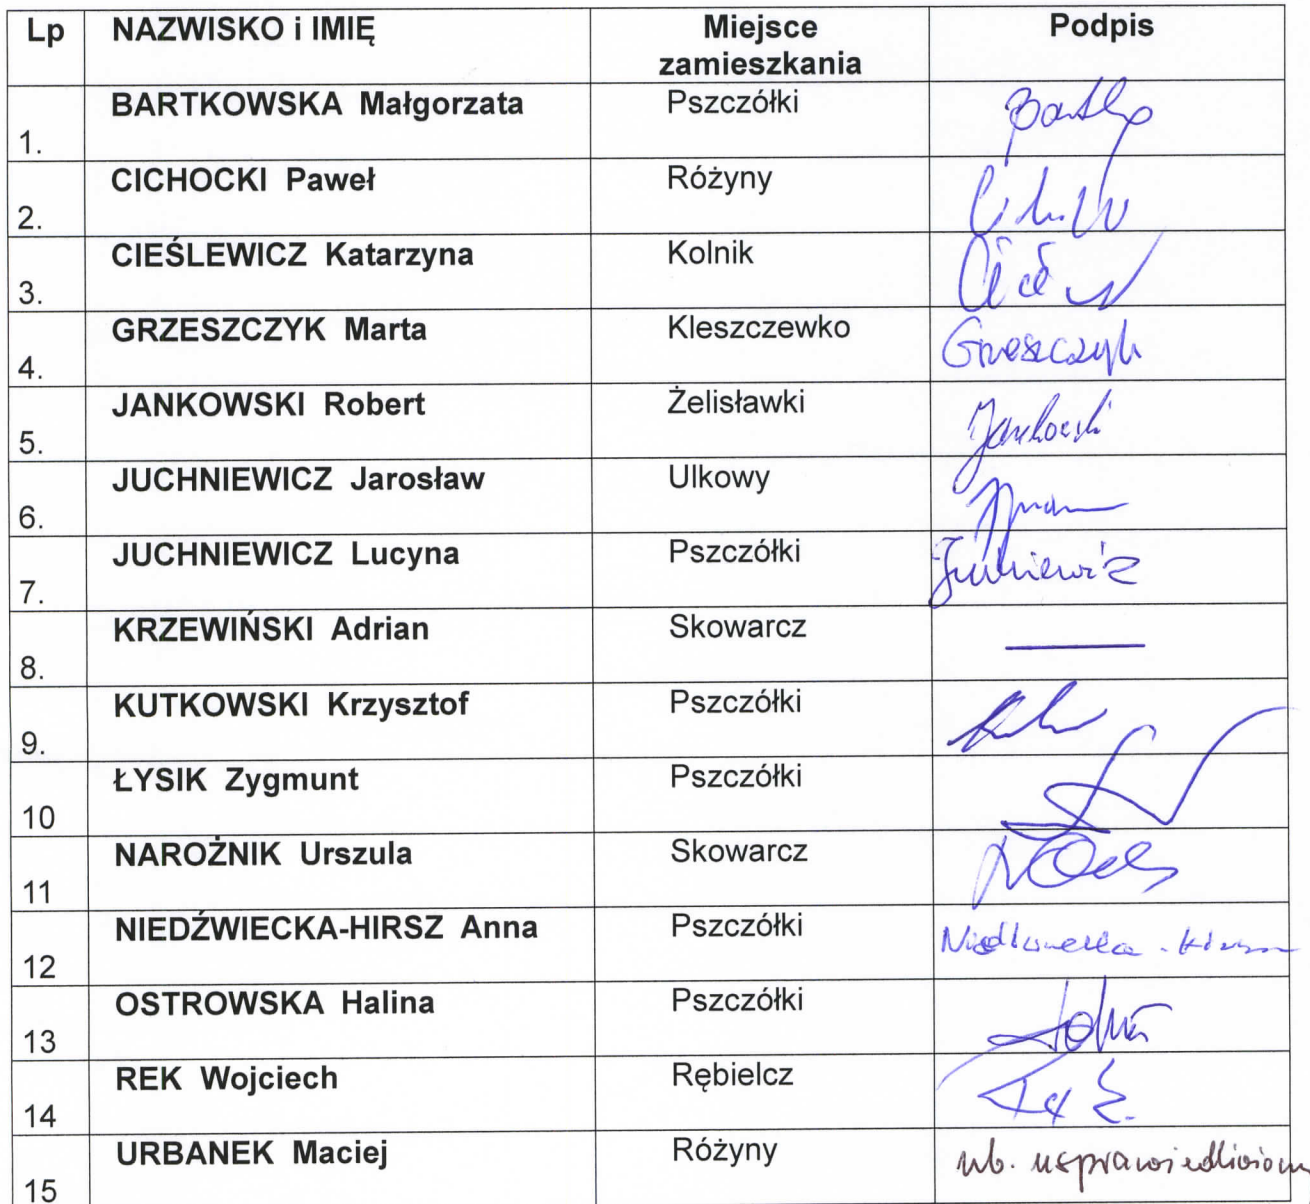 Lp NAZWISKO i IMIĘ Miejsce zamieszkania Podpis
1. BARTKOWSKA Małgorzata Pszczółki
2. CICHOCKI Paweł Różyny
3. CIEŚLEWICZ Katarzyna Kolnik
4. GRZESZCZYK Marta Kleszczewko
5. JANKOWSKI Robert Żelisławki Jankowski
6. JUCHNIEWICZ Jarosław Ulkowy
7. JUCHNIEWICZ Lucyna Pszczółki
8. KRZEWIŃSKI Adrian Skowarcz
9. KUTKOWSKI Krzysztof Pszczółki
10 ŁYSIK Zygmunt Pszczółki
11 NAROŻNIK Urszula Skowarcz
12 NIEDŹWIECKA-HIRSZ Anna Pszczółki
13 OSTROWSKA Halina Pszczółki
14 REK Wojciech Rębielcz
15 URBANEK Maciej Różyny nb. usprawiedliwiony